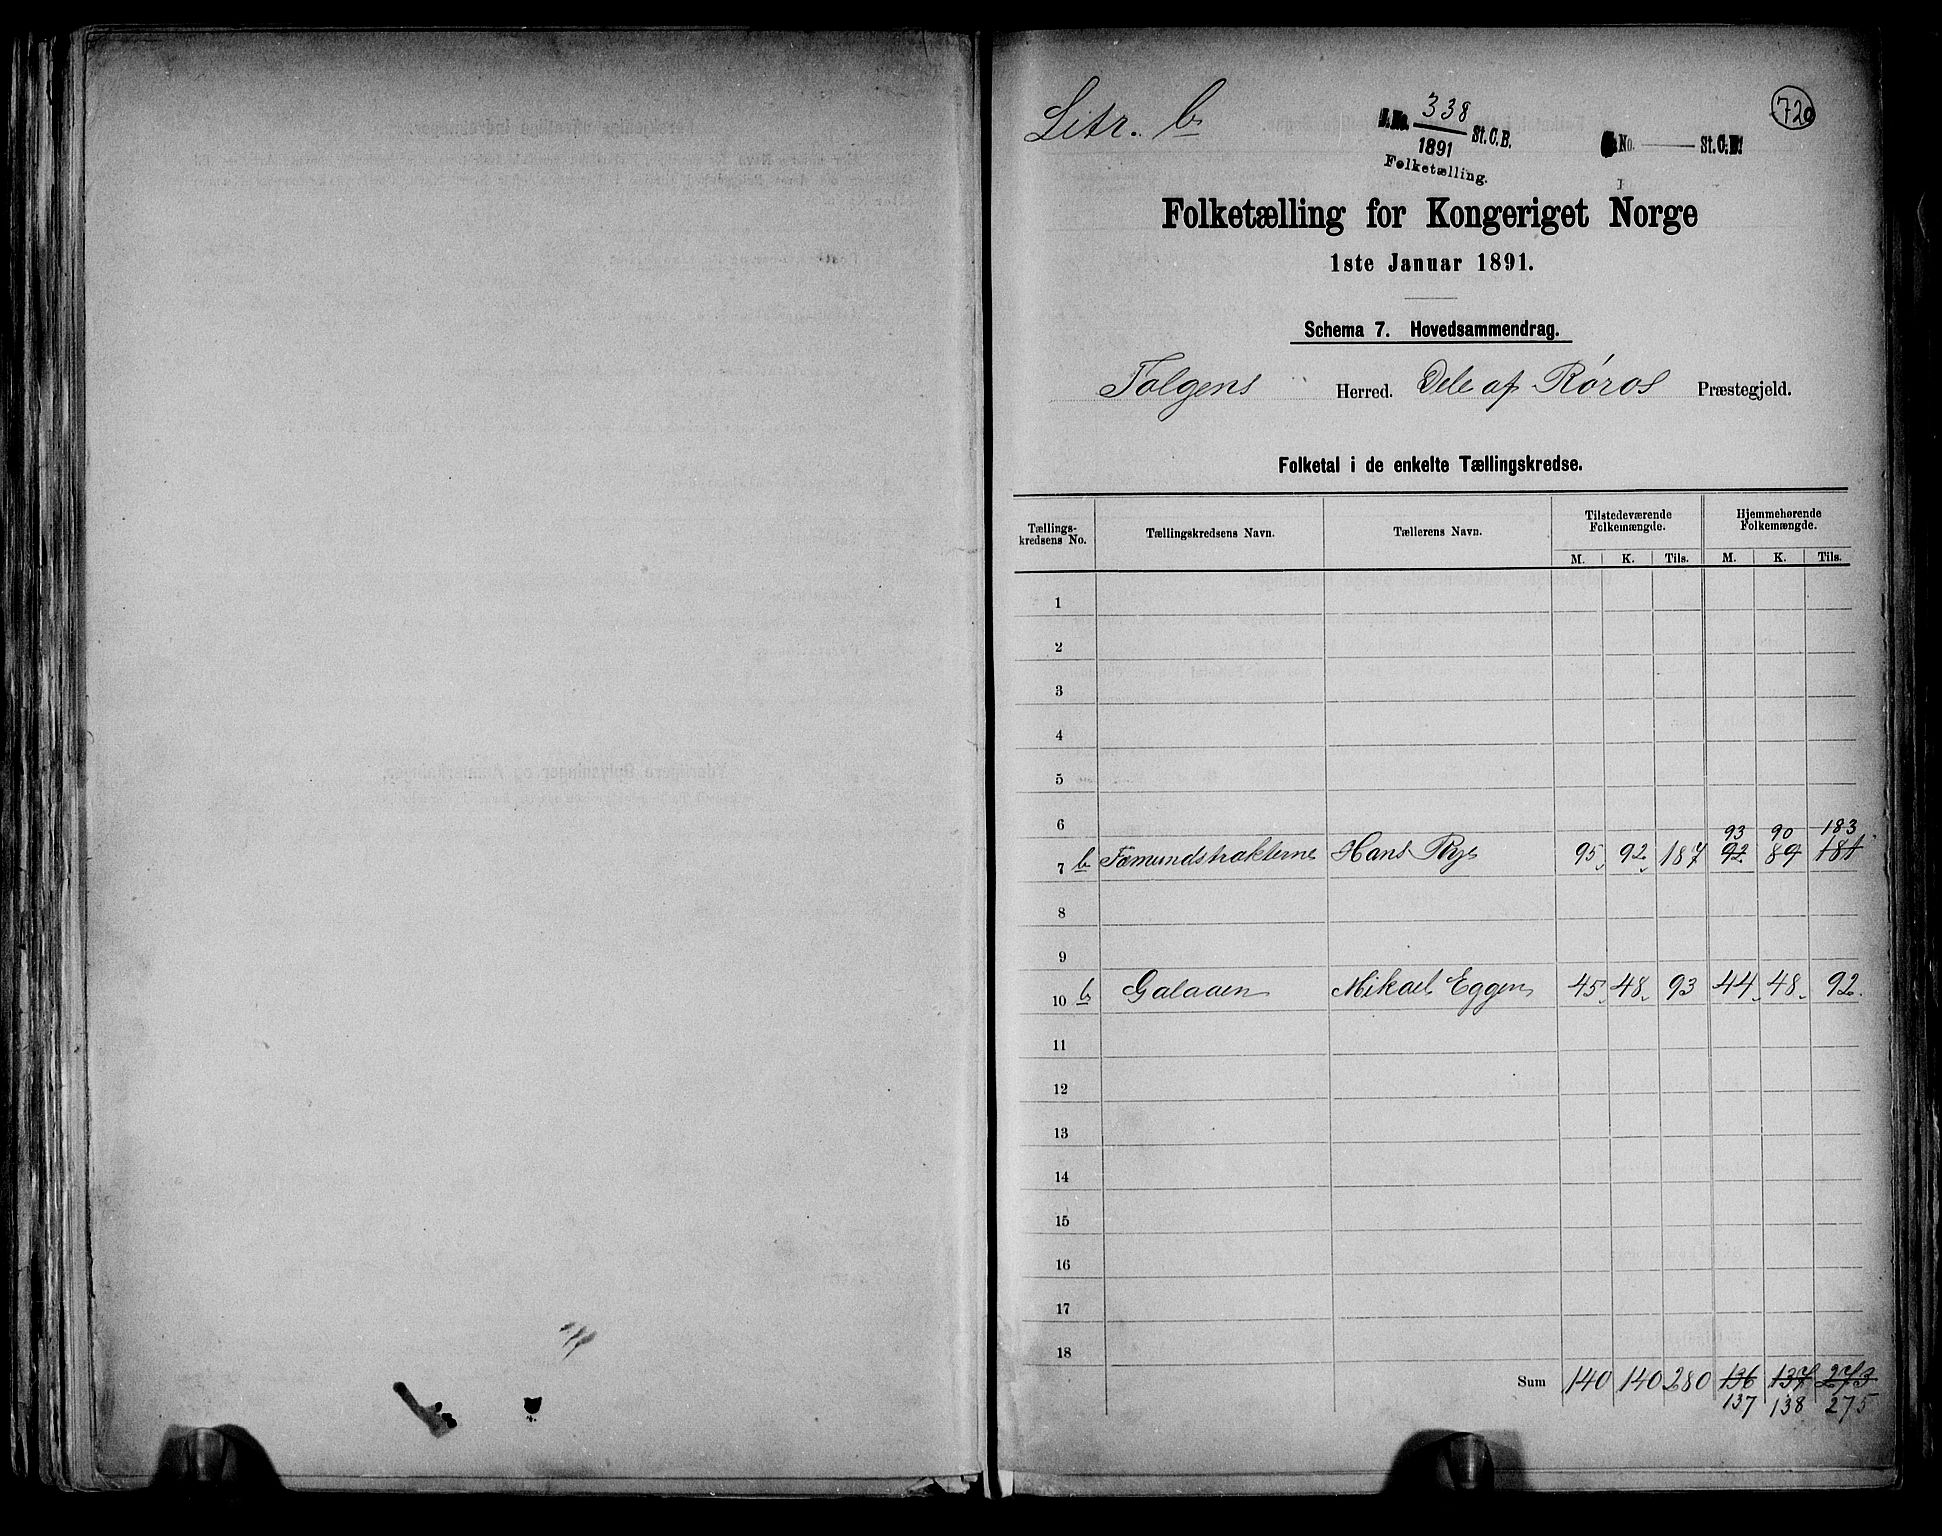 Litr. b
J.No. 338 St.C.B.
1891
Folketælling.
No. St.C.B.
720
Folketælling for Kongeriget Norge
1ste Januar 1891.
Schema 7. Hovedsammendrag.
Tolgens Herred. Dele af Røros Præstegjeld.
Folketal i de enkelte Tællingskredse.
Tællings-kredsens No. Tællingskredsens Navn. Tællerens Navn. Tilstedeværende Folkemængde. Hjemmehørende Folkemængde.
M. K. Tils. M. K. Tils.
1
2
3
4
5
6
93 90 183
7 b Fæmundstrakterne Hans Rye 95 92 187 92 89 181
8
9
10 b Galaaen Mikael Eggen 45 48 93 44 48 92.
11
12
13
14
15
16
17
18
Sum 140 140 280 136 137 273
137 138 275